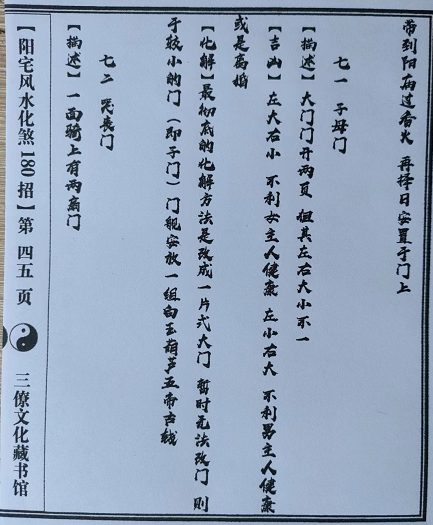 带到阳庙过香火 再择日安置于门上
七一 子母门
【描述】大门门开两页 但其左右大小不一
【吉凶】左大右小 不利女主人健康 左小右大 不利男主人健康
或是离婚
【化解】最彻底的化解方法是改成一片式大门 暂时无法改门 则
于较小的门（即子门）门楣安放一组白玉葫芦五帝古钱
七二 哭丧门
【描述】一面墙上有两扇门
【阳宅风水化煞180招】第 四五 页
三僚文化藏书馆